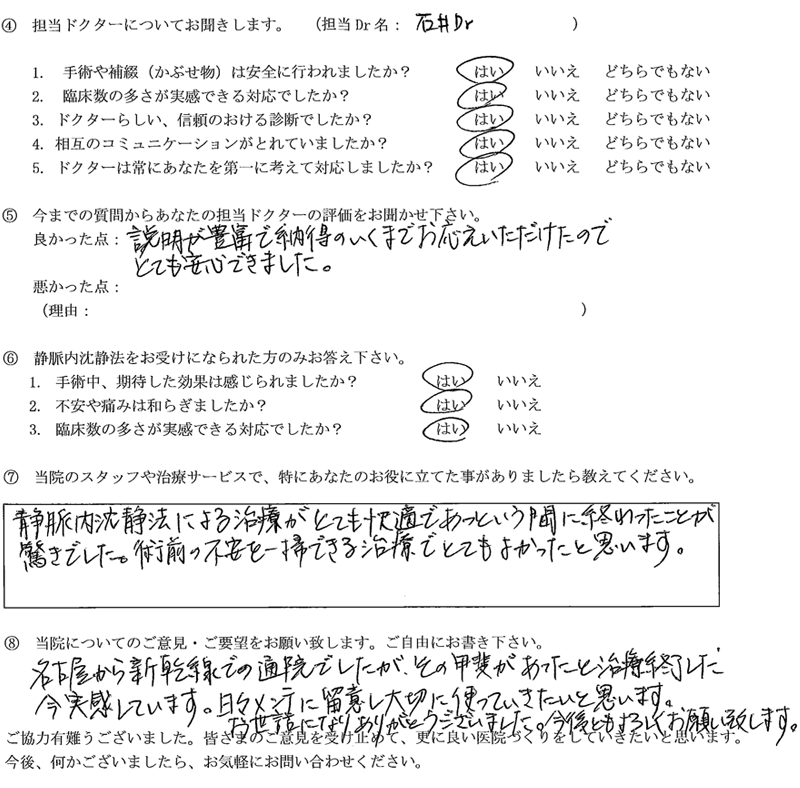 ④ 担当ドクターについてお聞きします。 (担当Dr名: 石井Dr )
1. 手術や補綴(かぶせ物)は安全に行われましたか? はい いいえ どちらでもない
2. 臨床数の多さが実感できる対応でしたか? はい いいえ どちらでもない
3. ドクターらしい、信頼のおける診断でしたか? はい いいえ どちらでもない
4. 相互のコミュニケーションがとれていましたか? はい いいえ どちらでもない
5. ドクターは常にあなたを第一に考えて対応しましたか? はい いいえ どちらでもない
⑤ 今までの質問からあなたの担当ドクターの評価をお聞かせ下さい。
良かった点: 説明が豊富で納得のいくまでお応えいただけたので
とても安心できました。
悪かった点:
(理由: )
⑥ 静脈内沈静法をお受けになられた方のみお答え下さい。
1. 手術中、期待した効果は感じられましたか? はい いいえ
2. 不安や痛みは和らぎましたか? はい いいえ
3. 臨床数の多さが実感できる対応でしたか? はい いいえ
⑦ 当院のスタッフや治療サービスで、特にあなたのお役に立てた事がありましたら教えてください。
静脈内沈静法による治療がとても快適であっという間に終わったことが
驚きでした。術前の不安を一掃できる治療でとてもよかったと思います。
⑧ 当院についてのご意見・ご要望をお願い致します。ご自由にお書き下さい。
名古屋から新幹線での通院でしたが、その甲斐があったと治療終了した
今実感しています。日々メンテに留意し大切に使っていきたいと思います。
お世話になりありがとうございました。今後ともよろしくお願い致します。
ご協力有難うございました。皆さまのご意見を受け止めて、更に良い医院づくりをしていきたいと思います。
今後、何かございましたら、お気軽にお問い合わせください。